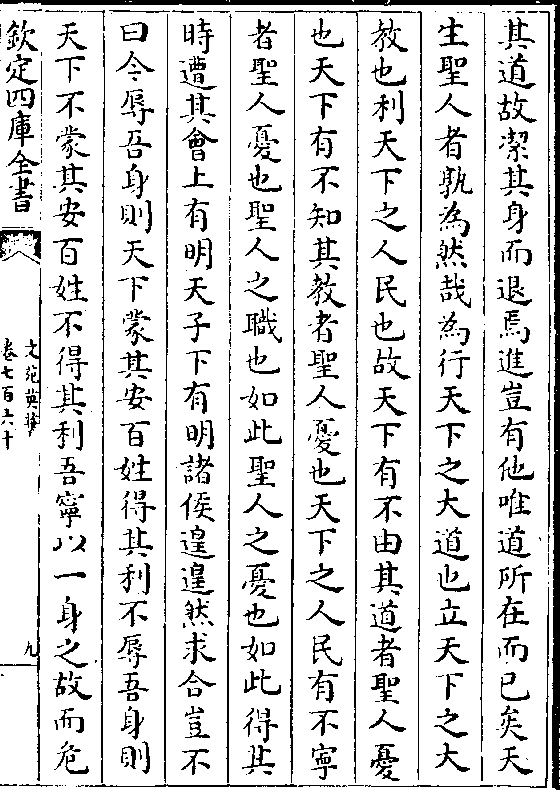 其道故潔其身而退焉進豈有他唯道所在而已矣天
生聖人者孰為然哉為行天下之大道也立天下之大
教也利天下之人民也故天下有不由其道者聖人憂
也天下有不知其教者聖人憂也天下之人民有不寧
者聖人憂也聖人之職也如此聖人之憂也如此得其
時遭其會上有明天子下有明諸侯遑遑然求合豈不
曰今辱吾身則天下蒙其安百姓得其利不辱吾身則
天下不蒙其安百姓不得其利吾寧以一身之故而危
欽定四庫全書
文苑英華
卷七百六十
九